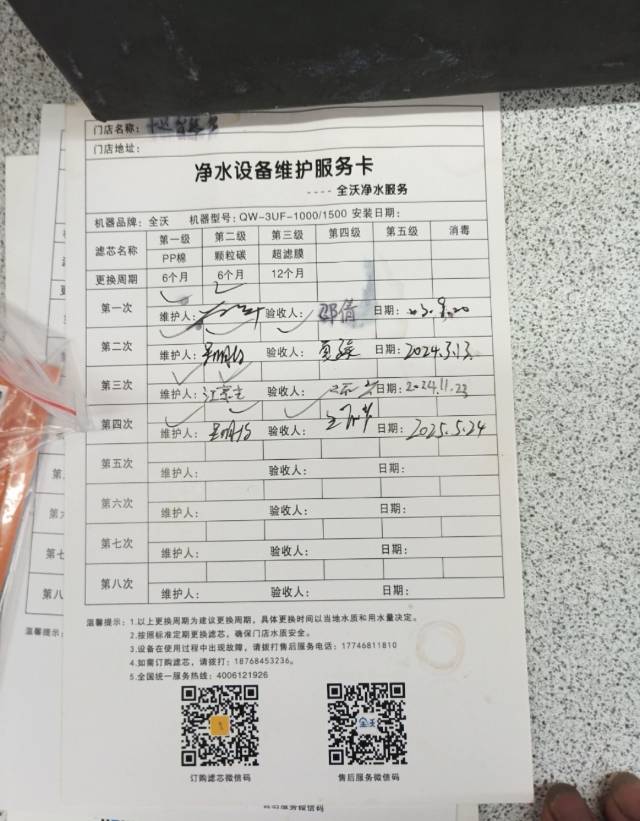 门店名称：
门店地址：
净水设备维护服务卡
---- 全沃净水服务
机器品牌: 全沃 机器型号: QW-3UF-1000/1500 安装日期:
滤芯名称 第一级 第二级 第三级 第四级 第五级 消毒
PP棉 颗粒碳 超滤膜
更换周期 6个月 6个月 12个月
第一次
维护人: 验收人: 邵倩 日期: 23.9.20
第二次
维护人: 验收人: 日期: 2024.3.13
第三次
维护人: 验收人: 日期: 2024.11.23
第四次
维护人: 验收人: 日期: 2025.5.24
第五次
维护人: 验收人: 日期:
第六次
维护人: 验收人: 日期:
第七次
维护人: 验收人: 日期:
第八次
维护人: 验收人: 日期:
温馨提示: 1.以上更换周期为建议更换周期，具体更换时间以当地水质和用水量决定。
2.按照标准定期更换滤芯，确保门店水质安全。
3.设备在使用过程中出现故障，请拨打售后服务电话: 17746811810
4.如需订购滤芯，请拨打: 18768453236。
5.全国统一服务热线: 4006121926
全沃
订购滤芯微信码 售后服务微信码
售后服务微信码